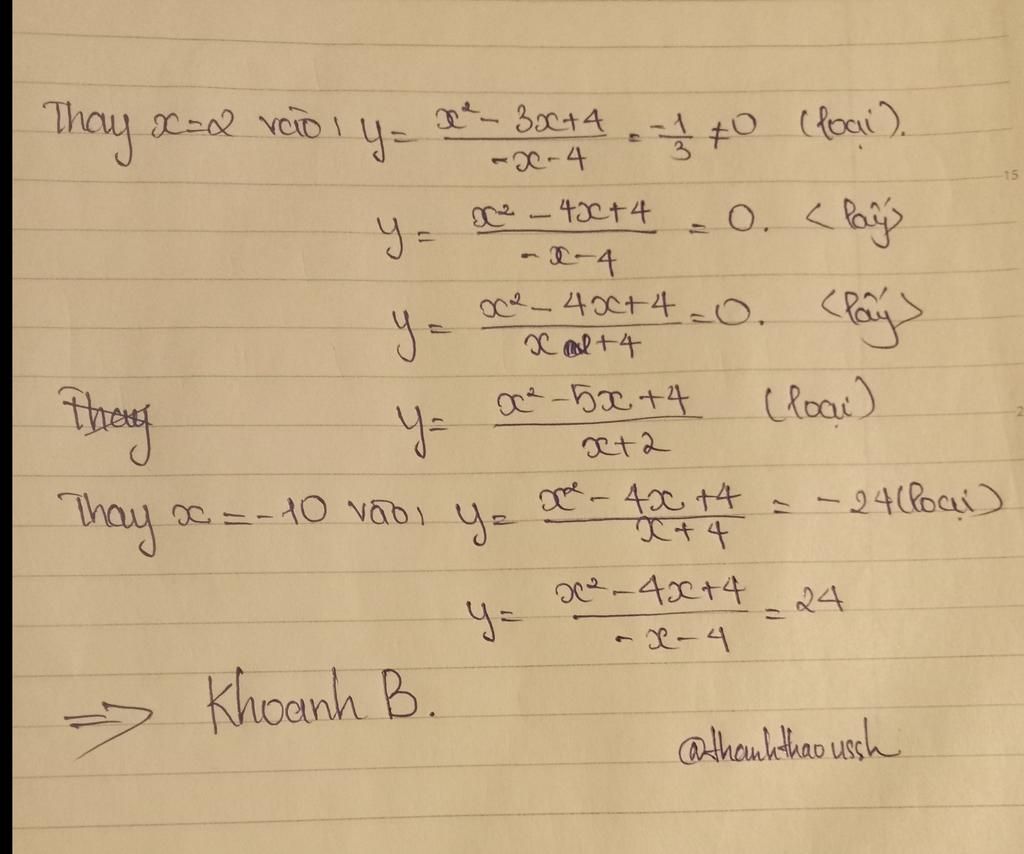 Thay x=2 vào, y= x² - 3x+4 / -x-4 = -1/3 ≠0 (loại).
y= x² - 4x+4 / -x-4 = 0. <lấy>
y= x² - 4x+4 / x +4 =0. <lấy>
Thay y= x² -5x+4 / x+2 (loại)
Thay x=-10 vào, y= x² - 4x+4 / x+4 = -24(loại)
y= x² -4x+4 / -x-4 = 24
=> Khoanh B.
@thanhthaoussh
15
2